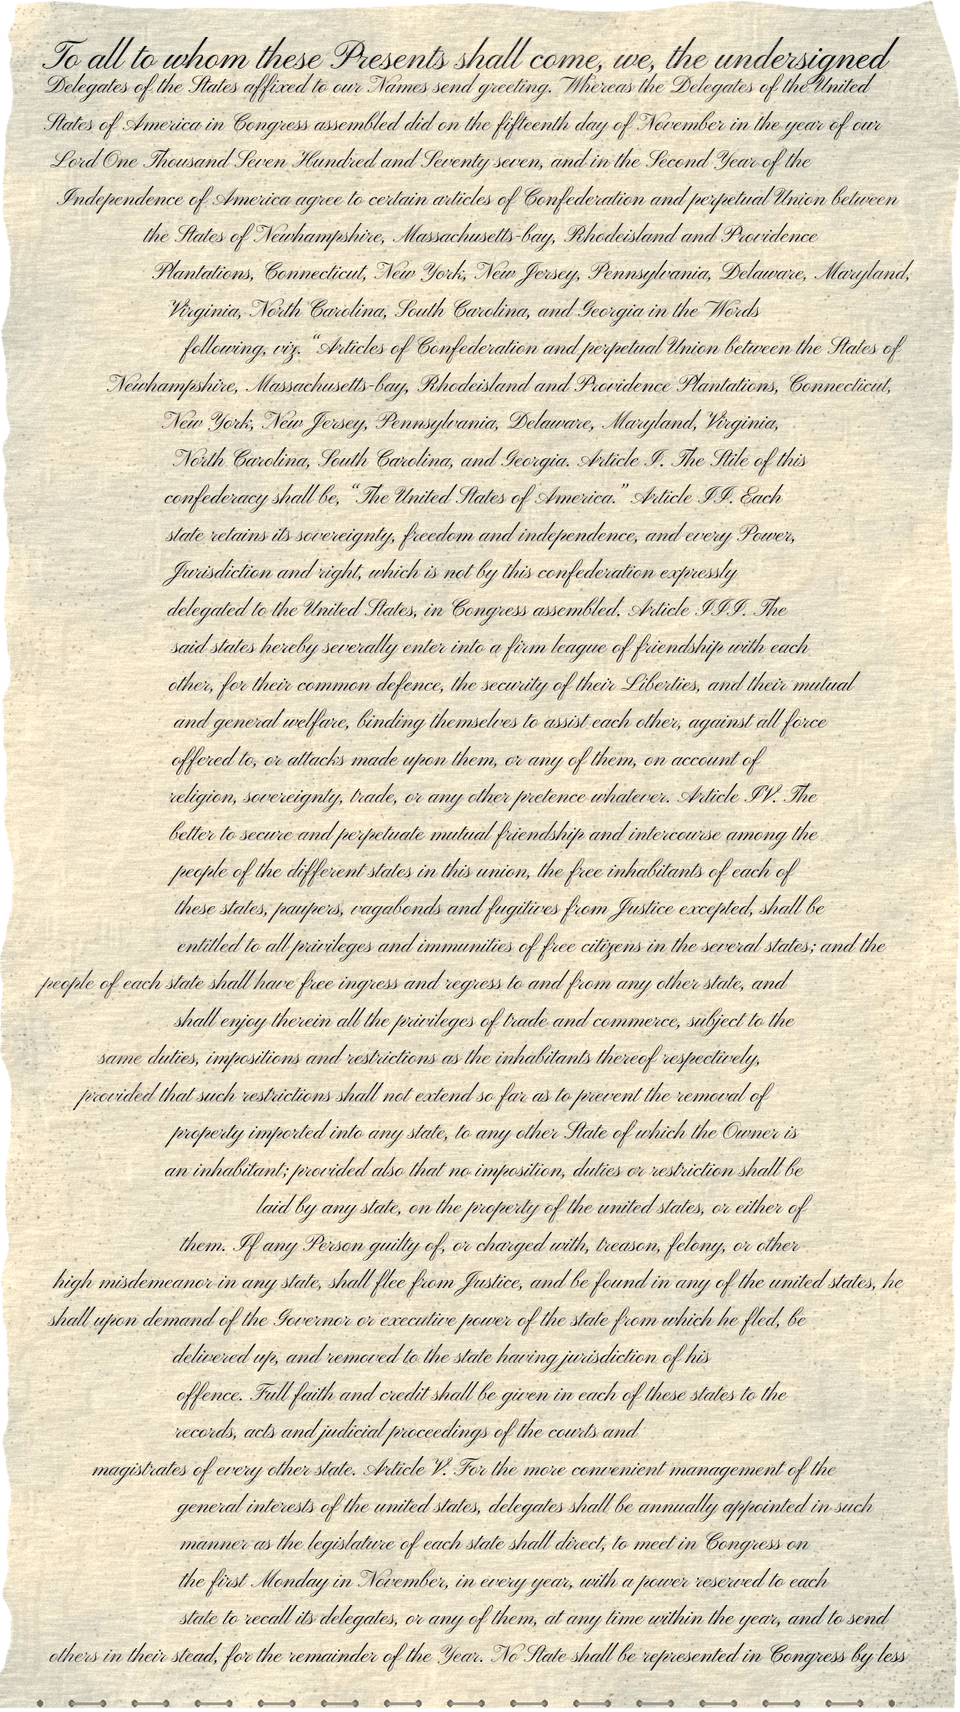 To all to whom these Presents shall come, we, the undersigned
Delegates of the States affixed to our Names send greeting. Whereas the Delegates of the United
States of America in Congress assembled did on the fifteenth day of November in the year of our
Lord One Thousand Seven Hundred and Seventy seven, and in the Second Year of the
Independence of America agree to certain articles of Confederation and perpetual Union between
the States of Newhampshire, Massachusetts-bay, Rhodeisland and Providence
Plantations, Connecticut, New York, New Jersey, Pennsylvania, Delaware, Maryland,
Virginia, North Carolina, South Carolina, and Georgia in the Words
following, viz. “Articles of Confederation and perpetual Union between the States of
Newhampshire, Massachusetts-bay, Rhodeisland and Providence Plantations, Connecticut,
New York, New Jersey, Pennsylvania, Delaware, Maryland, Virginia,
North Carolina, South Carolina, and Georgia. Article I. The Stile of this
confederacy shall be, “The United States of America.” Article II. Each
state retains its sovereignty, freedom and independence, and every Power,
Jurisdiction and right, which is not by this confederation expressly
delegated to the United States, in Congress assembled. Article III. The
said states hereby severally enter into a firm league of friendship with each
other, for their common defence, the security of their Liberties, and their mutual
and general welfare, binding themselves to assist each other, against all force
offered to, or attacks made upon them, or any of them, on account of
religion, sovereignty, trade, or any other pretence whatever. Article IV. The
better to secure and perpetuate mutual friendship and intercourse among the
people of the different states in this union, the free inhabitants of each of
these states, paupers, vagabonds and fugitives from Justice excepted, shall be
entitled to all privileges and immunities of free citizens in the several states; and the
people of each state shall have free ingress and regress to and from any other state, and
shall enjoy therein all the privileges of trade and commerce, subject to the
same duties, impositions and restrictions as the inhabitants thereof respectively,
provided that such restrictions shall not extend so far as to prevent the removal of
property imported into any state, to any other State of which the Owner is
an inhabitant; provided also that no imposition, duties or restriction shall be
laid by any state, on the property of the united states, or either of
them. If any Person guilty of, or charged with, treason, felony, or other
high misdemeanor in any state, shall flee from Justice, and be found in any of the united states, he
shall upon demand of the Governor or executive power of the state from which he fled, be
delivered up, and removed to the state having jurisdiction of his
offence. Full faith and credit shall be given in each of these states to the
records, acts and judicial proceedings of the courts and
magistrates of every other state. Article V. For the more convenient management of the
general interests of the united states, delegates shall be annually appointed in such
manner as the legislature of each state shall direct, to meet in Congress on
the first Monday in November, in every year, with a power reserved to each
state to recall its delegates, or any of them, at any time within the year, and to send
others in their stead, for the remainder of the Year. No State shall be represented in Congress by less